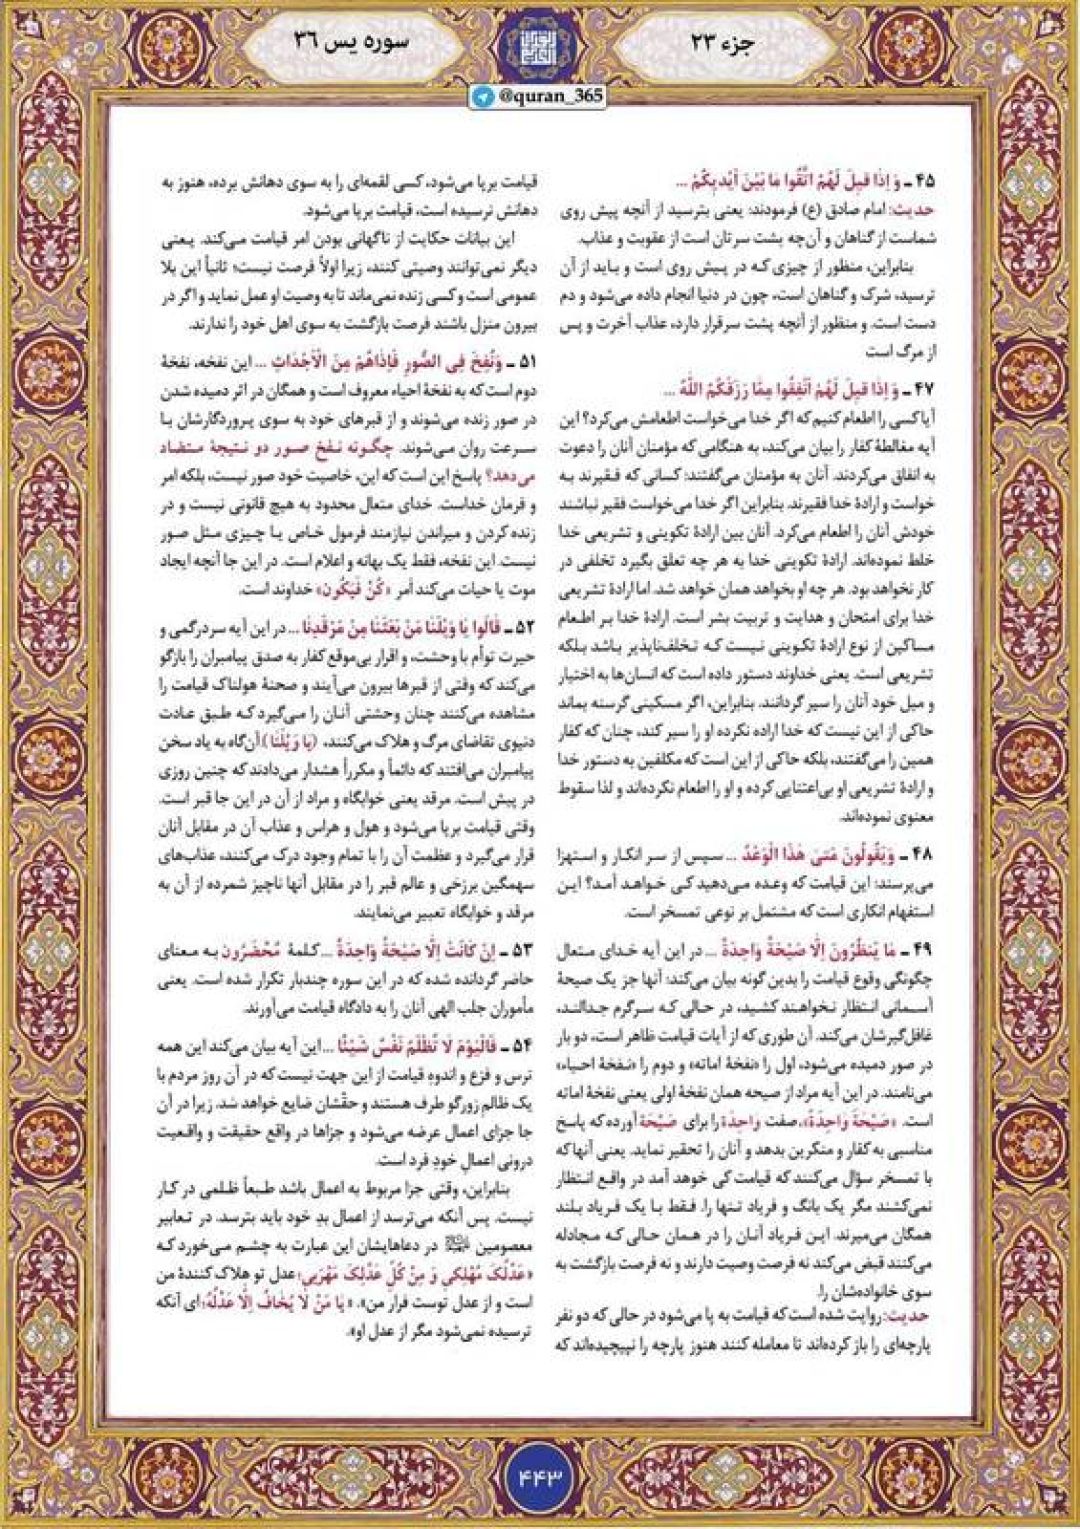 جزء ۲۳
سوره یس ۳۶
@quran_365
۴۵ ـ وَ اِذا قیلَ لَهُمُ اتَّقُوا ما بَیْنَ اَیْدیکُمْ ...
حدیث: امام صادق (ع) فرمودند: یعنی بترسید از آنچه پیش روی
شماست از گناهان و آن‌چه پشت سرتان است از عقوبت و عذاب.
بنابراین، منظور از چیزی که در پیش روی است و باید از آن
ترسید، شرک و گناهان است، چون در دنیا انجام داده می‌شود و دم
دست است. و منظور از آنچه پشت سرقرار دارد، عذاب آخرت و پس
از مرگ است
۴۷ ـ وَ اِذا قیلَ لَهُمْ اَنْفِقُوا مِمّا رَزَقَکُمُ اللّهُ ...
آیا کسی را اطعام کنیم که اگر خدا می‌خواست اطعامش می‌کرد؟ این
آیه مغالطهٔ کفار را بیان می‌کند، به هنگامی که مؤمنان آنان را دعوت
به انفاق می‌کردند. آنان به مؤمنان می‌گفتند: کسانی که فقیرند به
خواست و ارادهٔ خدا فقیرند. بنابراین اگر خدا می‌خواست فقیر نباشند
خودش آنان را اطعام می‌کرد. آنان بین ارادهٔ تکوینی و تشریعی خدا
خلط نموده‌اند. ارادهٔ تکوینی خدا به هر چه تعلق بگیرد تخلفی در
کار نخواهد بود. هر چه او بخواهد همان خواهد شد. اما ارادهٔ تشریعی
خدا برای امتحان و هدایت و تربیت بشر است. ارادهٔ خدا بر اطعام
مساکین از نوع ارادهٔ تکوینی نیست که تخلف‌ناپذیر باشد بلکه
تشریعی است. یعنی خداوند دستور داده است که انسان‌ها به اختیار
و میل خود آنان را سیر گردانند. بنابراین، اگر مسکینی گرسنه بماند
حاکی از این نیست که خدا اراده نکرده او را سیر کند، چنان که کفار
همین را می‌گفتند، بلکه حاکی از این است که مکلفین به دستور خدا
و ارادهٔ تشریعی او بی‌اعتنایی کرده و او را اطعام نکرده‌اند و لذا سقوط
معنوی نموده‌اند.
۴۸ ـ وَیَقُولُونَ مَتیٰ هٰذَا الْوَعْدُ ... سپس از سر انکار و استهزا
می‌پرسند: این قیامت که وعده می‌دهید کی خواهد آمد؟ این
استفهام انکاری است که مشتمل بر نوعی تمسخر است.
۴۹ ـ ما یَنْظُرُونَ اِلّا صَیْحَةً واحِدَةً ... در این آیه خدای متعال
چگونگی وقوع قیامت را بدین گونه بیان می‌کند: آنها جز یک صیحهٔ
آسمانی انتظار نخواهند کشید، در حالی که سرگرم جدالند،
غافل‌گیرشان می‌کند. آن طوری که از آیات قیامت ظاهر است، دو بار
در صور دمیده می‌شود، اول را «نفخهٔ اماته» و دوم را «نفخهٔ احیاء»
می‌نامند. در این آیه مراد از صیحه همان نفخهٔ اولی یعنی نفخهٔ اماته
است. «صَیْحَةً واحِدَةً»، صفت واحِدَةً را برای صَیْحَةً آورده که پاسخ
مناسبی به کفار و منکرین بدهد و آنان را تحقیر نماید. یعنی آنها که
با تمسخر سؤال می‌کنند که قیامت کی خواهد آمد در واقع انتظار
نمی‌کشند مگر یک بانگ و فریاد تنها را. فقط با یک فریاد بلند
همگان می‌میرند. این فریاد آنان را در همان حالی که مجادله
می‌کنند قبض می‌کند نه فرصت وصیت دارند و نه فرصت بازگشت به
سوی خانواده‌شان را.
حدیث: روایت شده است که قیامت به پا می‌شود در حالی که دو نفر
پارچه‌ای را باز کرده‌اند تا معامله کنند هنوز پارچه را نپیچیده‌اند که
قیامت برپا می‌شود، کسی لقمه‌ای را به سوی دهانش برده، هنوز به
دهانش نرسیده است، قیامت برپا می‌شود.
این بیانات حکایت از ناگهانی بودن امر قیامت می‌کند. یعنی
دیگر نمی‌توانند وصیتی کنند، زیرا اولاً فرصت نیست؛ ثانیاً این بلا
عمومی است و کسی زنده نمی‌ماند تا به وصیت او عمل نماید و اگر در
بیرون منزل باشند فرصت بازگشت به سوی اهل خود را ندارند.
۵۱ ـ وَنُفِخَ فِی الصُّورِ فَاِذاهُمْ مِنَ الْاَجْداثِ ... این نفخه، نفخهٔ
دوم است که به نفخهٔ احیاء معروف است و همگان در اثر دمیده شدن
در صور زنده می‌شوند و از قبرهای خود به سوی پروردگارشان با
سرعت روان می‌شوند. چگونه نفخ صور دو نتیجهٔ متضاد
می‌دهد؟ پاسخ این است که این، خاصیت خود صور نیست، بلکه امر
و فرمان خداست. خدای متعال محدود به هیچ قانونی نیست و در
زنده کردن و میراندن نیازمند فرمول خاص یا چیزی مثل صور
نیست. این نفخه، فقط یک بهانه و اعلام است. در این جا آنچه ایجاد
موت یا حیات می‌کند اَمر «کُنْ فَیَکُون» خداوند است.
۵۲ ـ قالُوا یا وَیْلَنا مَنْ بَعَثَنا مِنْ مَرْقَدِنا ... در این آیه سردرگمی و
حیرت توأم با وحشت، و اقرار بی‌موقع کفار به صدق پیامبران را بازگو
می‌کند که وقتی از قبرها بیرون می‌آیند و صحنهٔ هولناک قیامت را
مشاهده می‌کنند چنان وحشتی آنان را می‌گیرد که طبق عادت
دنیوی تقاضای مرگ و هلاک می‌کنند، (یا وَیْلَنا) آن‌گاه به یاد سخن
پیامبران می‌افتند که دائماً و مکرراً هشدار می‌دادند که چنین روزی
در پیش است. مرقد یعنی خوابگاه و مراد از آن در این جا قبر است.
وقتی قیامت برپا می‌شود و هول و هراس و عذاب آن در مقابل آنان
قرار می‌گیرد و عظمت آن را با تمام وجود درک می‌کنند، عذاب‌های
سهمگین برزخی و عالم قبر را در مقابل آنها ناچیز شمرده از آن به
مرقد و خوابگاه تعبیر می‌نمایند.
۵۳ ـ اِنْ کانَتْ اِلّا صَیْحَةً واحِدَةً ... کلمهٔ مُحْضَرُون به معنای
حاضر گردانده شده که در این سوره چندبار تکرار شده است. یعنی
مأموران جلب الهی آنان را به دادگاه قیامت می‌آورند.
۵۴ ـ فَالْیَوْمَ لا تُظْلَمُ نَفْسٌ شَیْئًا ... این آیه بیان می‌کند این همه
ترس و فزع و اندوه قیامت از این جهت نیست که در آن روز مردم با
یک ظالم زورگو طرف هستند و حقّشان ضایع خواهد شد. زیرا در آن
جا جزای اعمال عرضه می‌شود و جزاها در واقع حقیقت و واقعیت
درونی اعمالِ خودِ فرد است.
بنابراین، وقتی جزا مربوط به اعمال باشد طبعاً ظلمی در کار
نیست. پس آنکه می‌ترسد از اعمال بدِ خود باید بترسد. در تعابیر
معصومین علیهم‌السلام در دعاهایشان این عبارت به چشم می‌خورد که
«عَدْلُکَ مُهْلِکی وَ مِنْ کُلِّ عَدْلِکَ مَهْرَبی؛ عدل تو هلاک کنندهٔ من
است و از عدل توست فرار من». «یا مَنْ لا یُخافُ اِلّا عَدْلُهُ؛ ای آنکه
ترسیده نمی‌شود مگر از عدل او».
۴۴۳